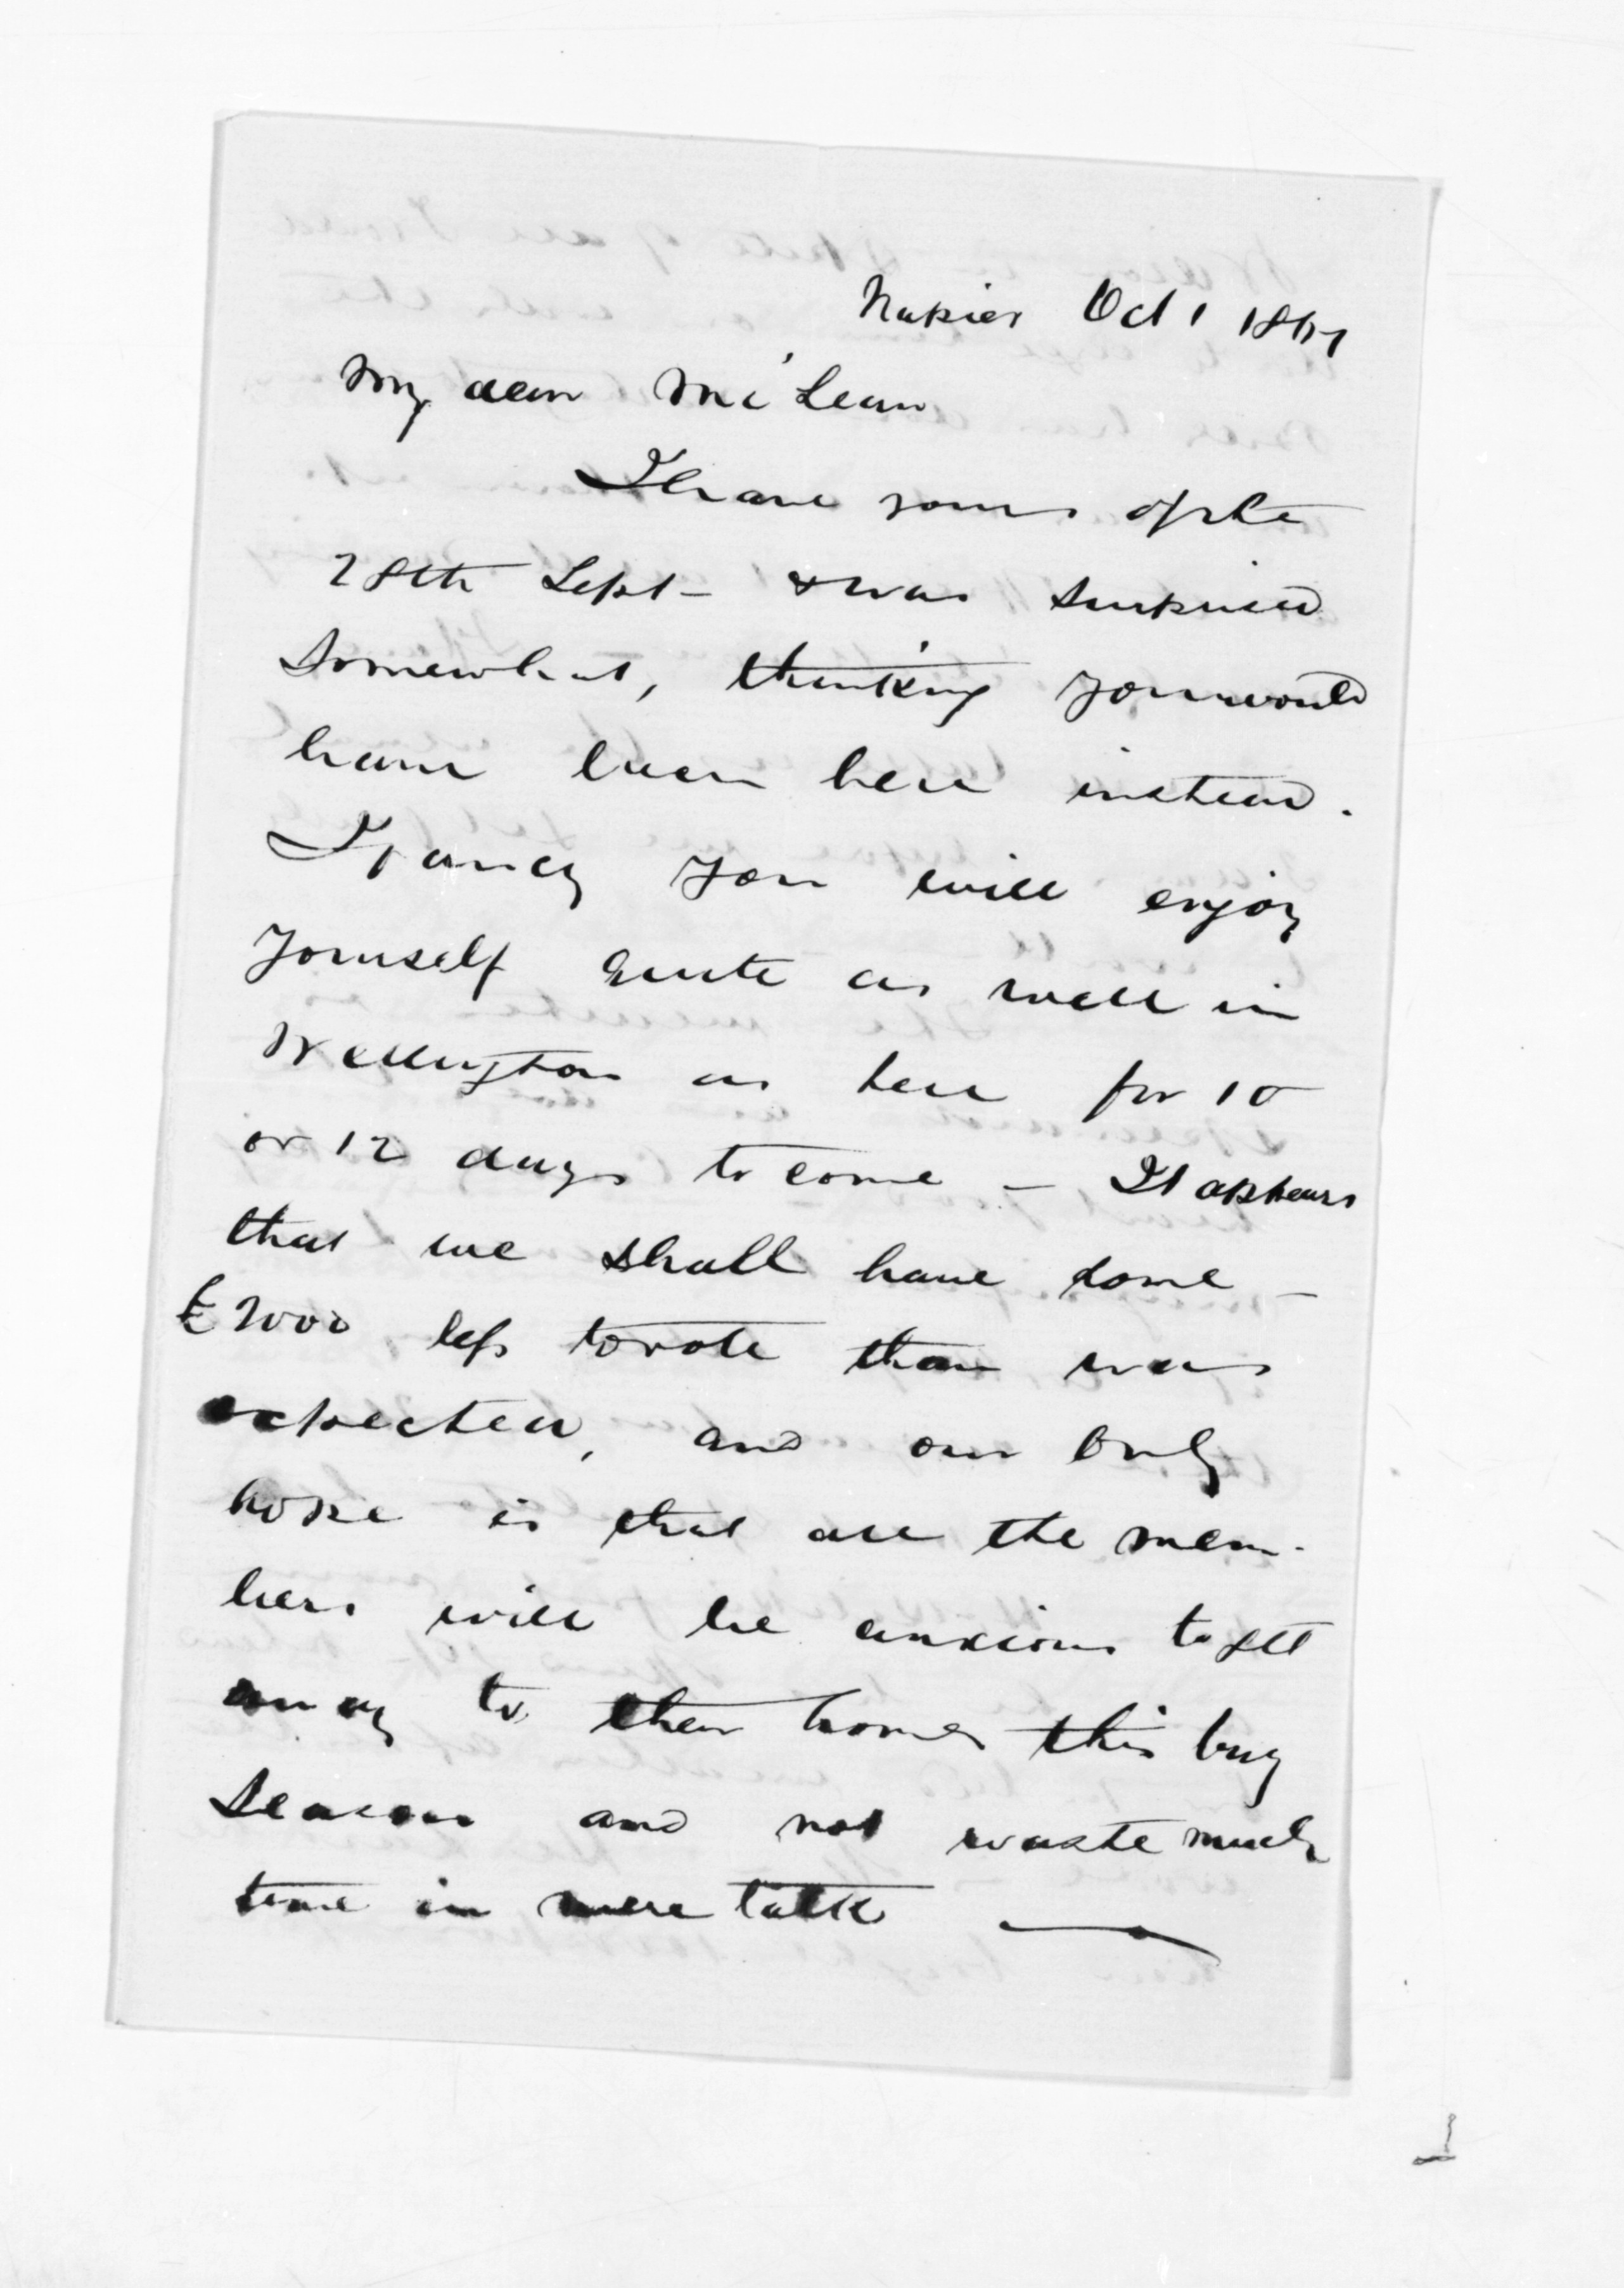 Napier Oct 1 1867
My dear McLean
I have yours of the
28th Sept - & was surprised
somewhat, thinking you would
have been here instead.
I fancy you will enjoy
yourself quite as well in
Wellington as here for 10
or 12 days to come - It appears
that we shall have some -
£2000 less to vote than was
expected, and our only
hope is that all the mem-
bers will be anxious to get
away to their homes this busy
season and not waste much
time in mere talk
1